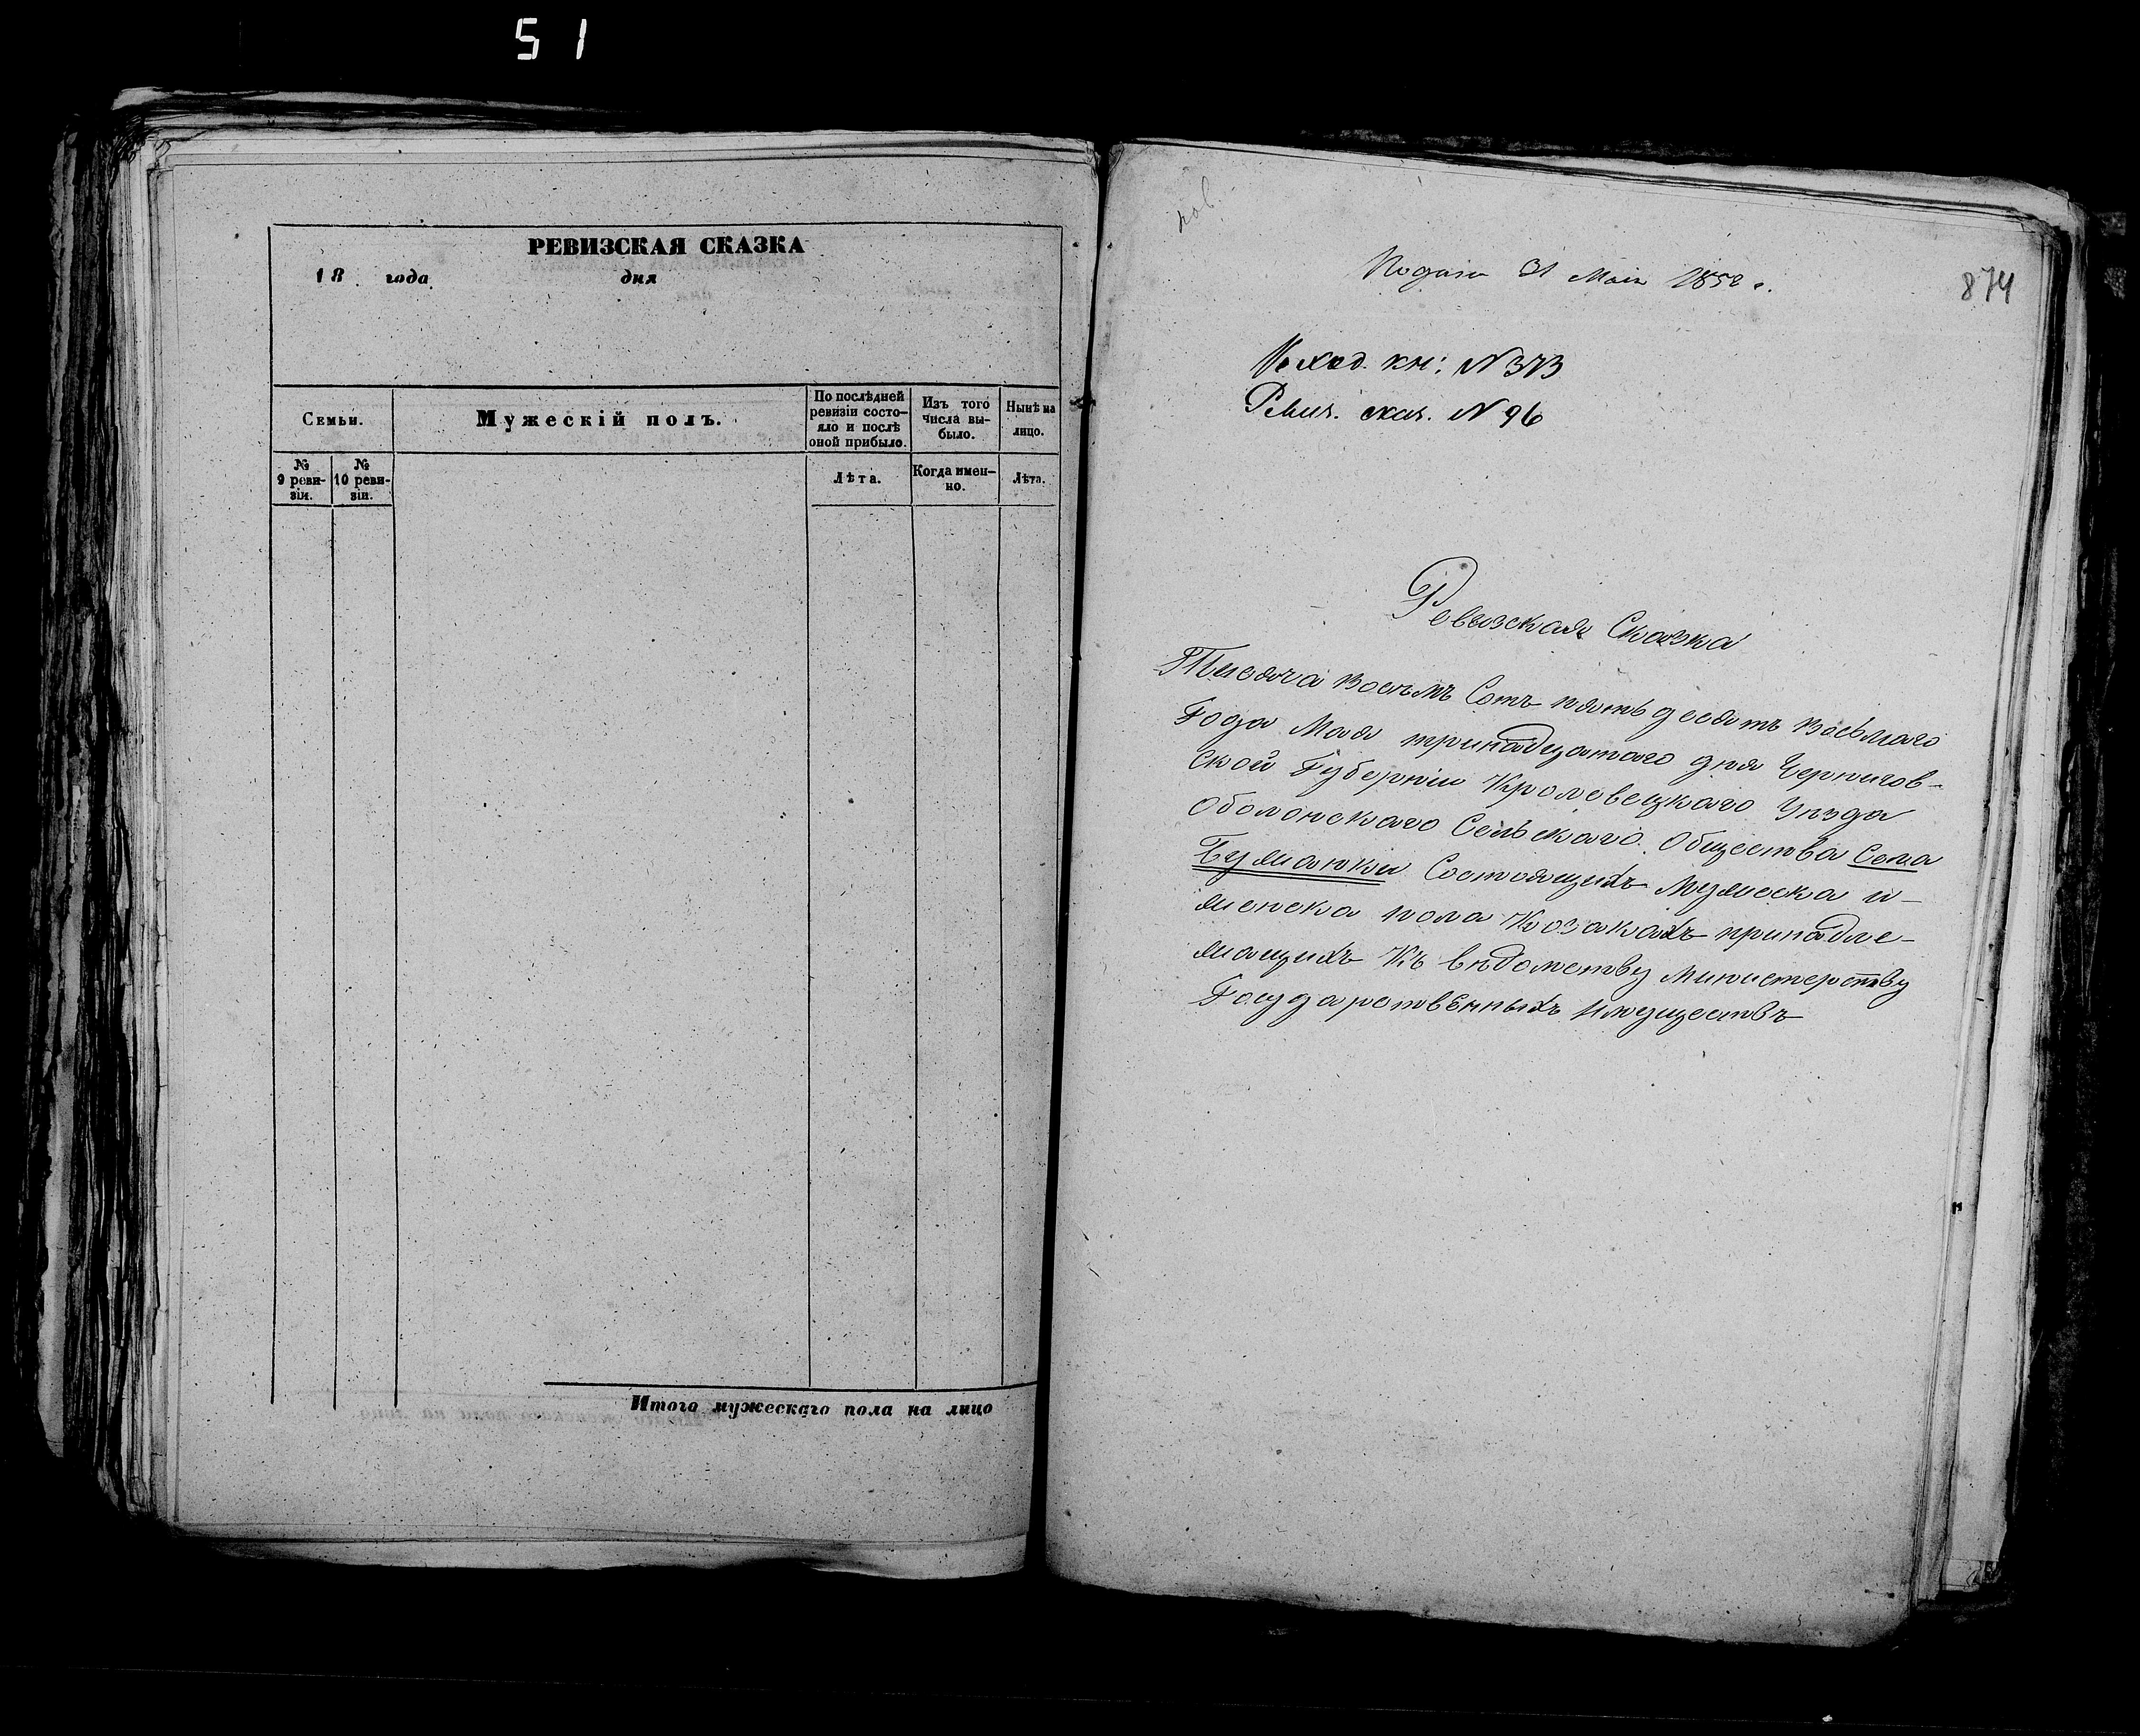 51
РЕВИЗСКАЯ СКАЗКА
18 года дня
Семьи.
Мужескій полъ.
По послѣдней ревизіи состо-
яло и послѣ оной прибыло.
Изъ того числа вы-
было.
Нынѣ на лицо.
№ 9 реви-
зіи.
№ 10 реви-
зіи.
Лѣта.
Когда имен-
но.
Лѣта.
Итого мужескаго пола на лицо
Подана 31 Мая 1858 г.
874
кн: N 373
Ревиз. сказ. N 96
Ревизская Сказка
Тисяча восемъ Сотъ пятьдесятъ Восьмаго
Года Мая тринадцатаго дня Чернигов-
ской Губерніи Кролевецкаго Уѣзда
Оболонскаго Сельскаго Общества Села
Бужанки Состоящихъ Мужеска и-
женска пола Козакахъ принадле-
жащихъ Къ вѣдомству Министерству
Государственныхъ Имуществъ